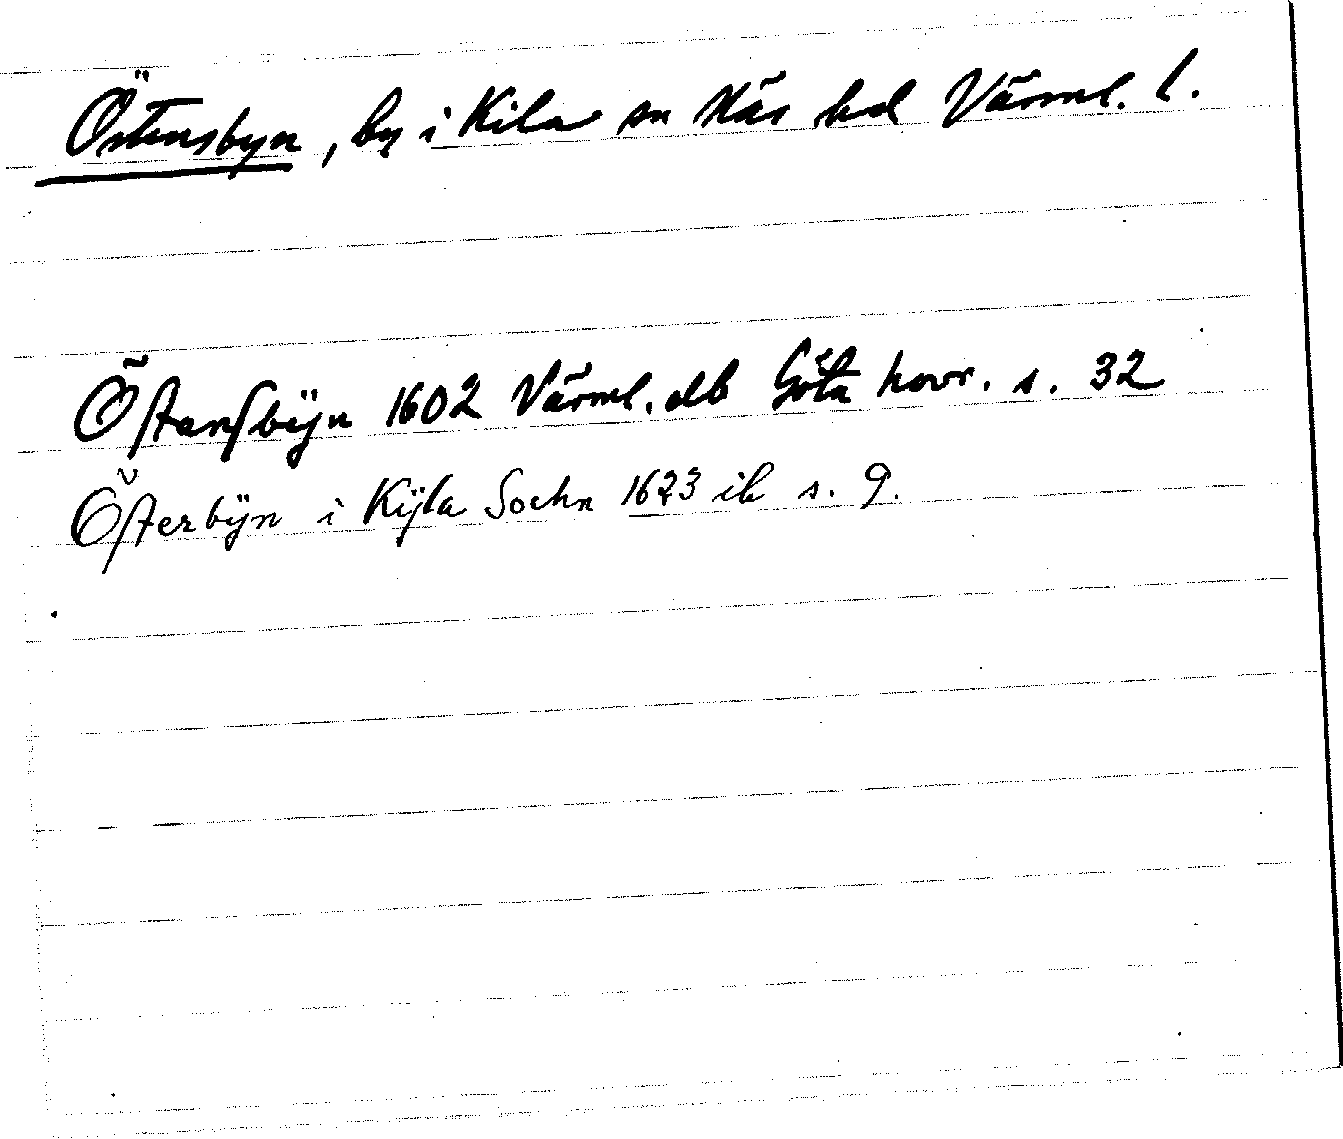 Östensbyn, by i Kila sn Näs hd Värml. l.
Östansbÿn 1602 Värml. db Göta hovr. s. 32
Österbÿn i Kÿla Sochn 1623 ib s. 9.